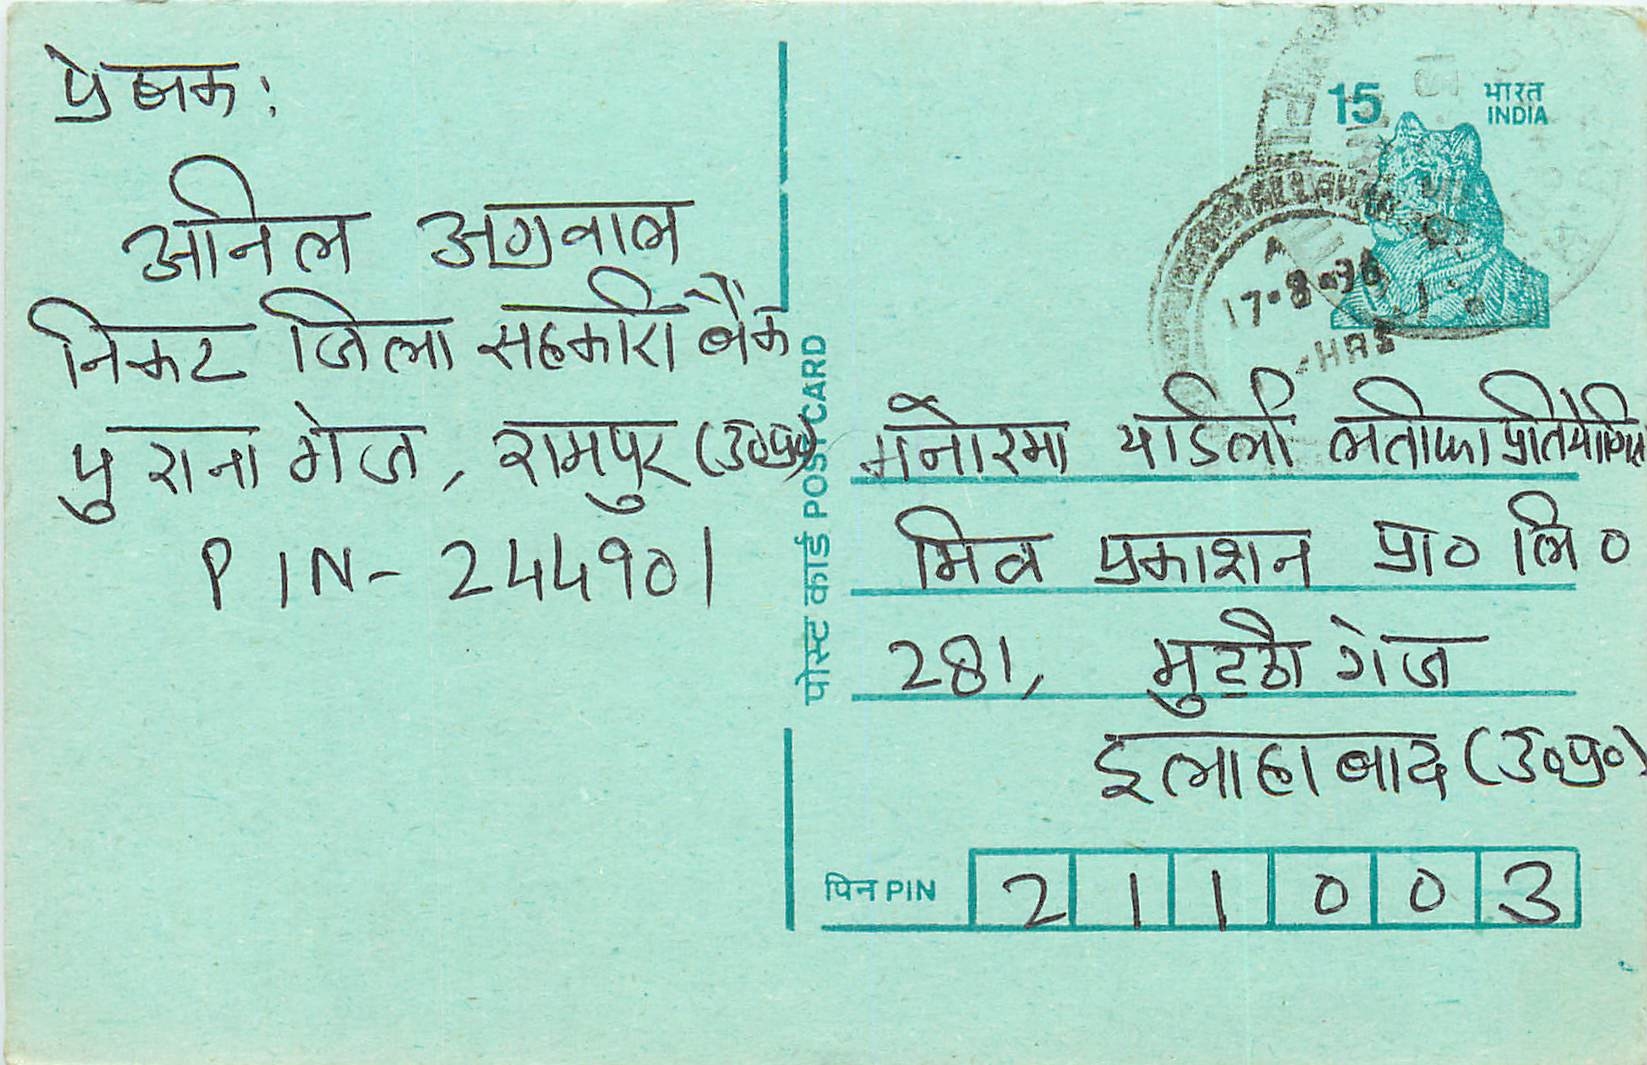 प्रेक्षक:
अनिल अग्रवाल
निकट जिला सहकारी बैंक
पुराना गंज, रामपुर (उ०प्र०)
PIN- 244901
पोस्ट कार्ड POST CARD
15 भारत
INDIA
ALLAHABAD
17-8-96
HRS
मनोरमा यार्डली लतीफा प्रतियोगिता
मित्र प्रकाशन प्रा० लि०
281, मुट्ठी गंज
इलाहाबाद (उ०प्र०)
पिन PIN 211003